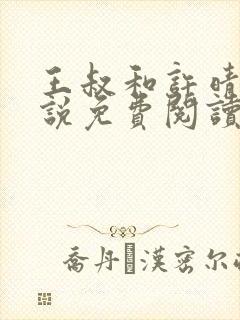 王叔和許晴
說免費閱讀
喬丹·漢密尔